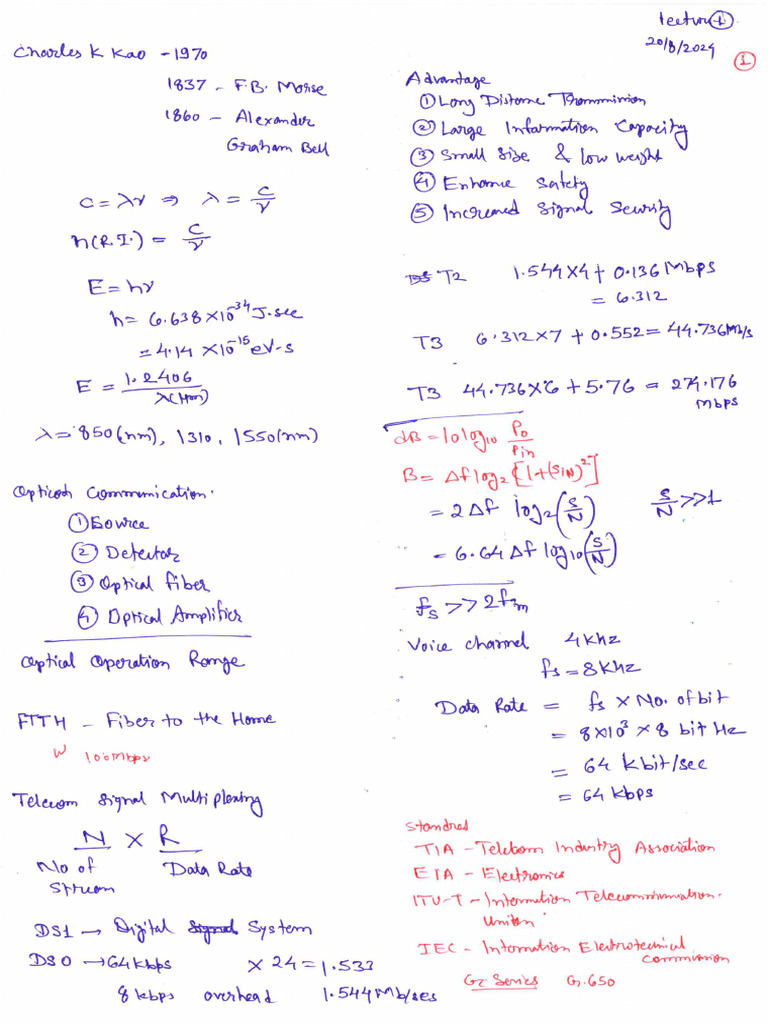 Lecture 1
20/8/2024
1
Charles K Kao - 1970
1837 - F.B. Morse
1860 - Alexander
Graham Bell
C = λν ⇒ λ = C/ν
n(R.I.) = C/ν
E = hν
h = 6.638 × 10^-34 J.sec
= 4.14 × 10^-15 eV-s
E = 1.2406/λ(μm)
λ = 850(nm), 1310, 1550(nm)
Optical Communication.
① Source
② Detector
③ Optical fiber
④ Optical Amplifier
Optical Operation Range
FTTH - Fiber to the Home
100Mbps
Telecom Signal Multiplexing
N × R
No of Data Rate
Stream
DS1 → Digital Signal System
DS0 → 64 kbps × 24 = 1.533
8 kbps overhead 1.544 Mb/ses
Advantage
① Long Distance Transmission
② Large Information Capacity
③ Small Size & low weight
④ Enhance Safety
⑤ Increased Signal Security
T2 1.544×4 + 0.136 Mbps
= 6.312
T3 6.312×7 + 0.552 = 44.736 Mb/s
T3 44.736×6 + 5.76 = 274.176
Mbps
dB = 10 log10 Po/Pin
B = Δf log2 [1+(S/N)^2]
= 2Δf log2 (S/N) S/N >>1
= 6.64 Δf log10 (S/N)
fs >> 2fm
Voice channel 4 khz
fs = 8 Khz
Data Rate = fs × No. of bit
= 8×10^3 × 8 bit Hz
= 64 kbit/sec
= 64 kbps
Standred
TIA - Telecom Industry Association
EIA - Electronics
ITU-T - Internation Telecommunication.
Union
IEC - Internation Electrotechnical
Commission
G Series G.650